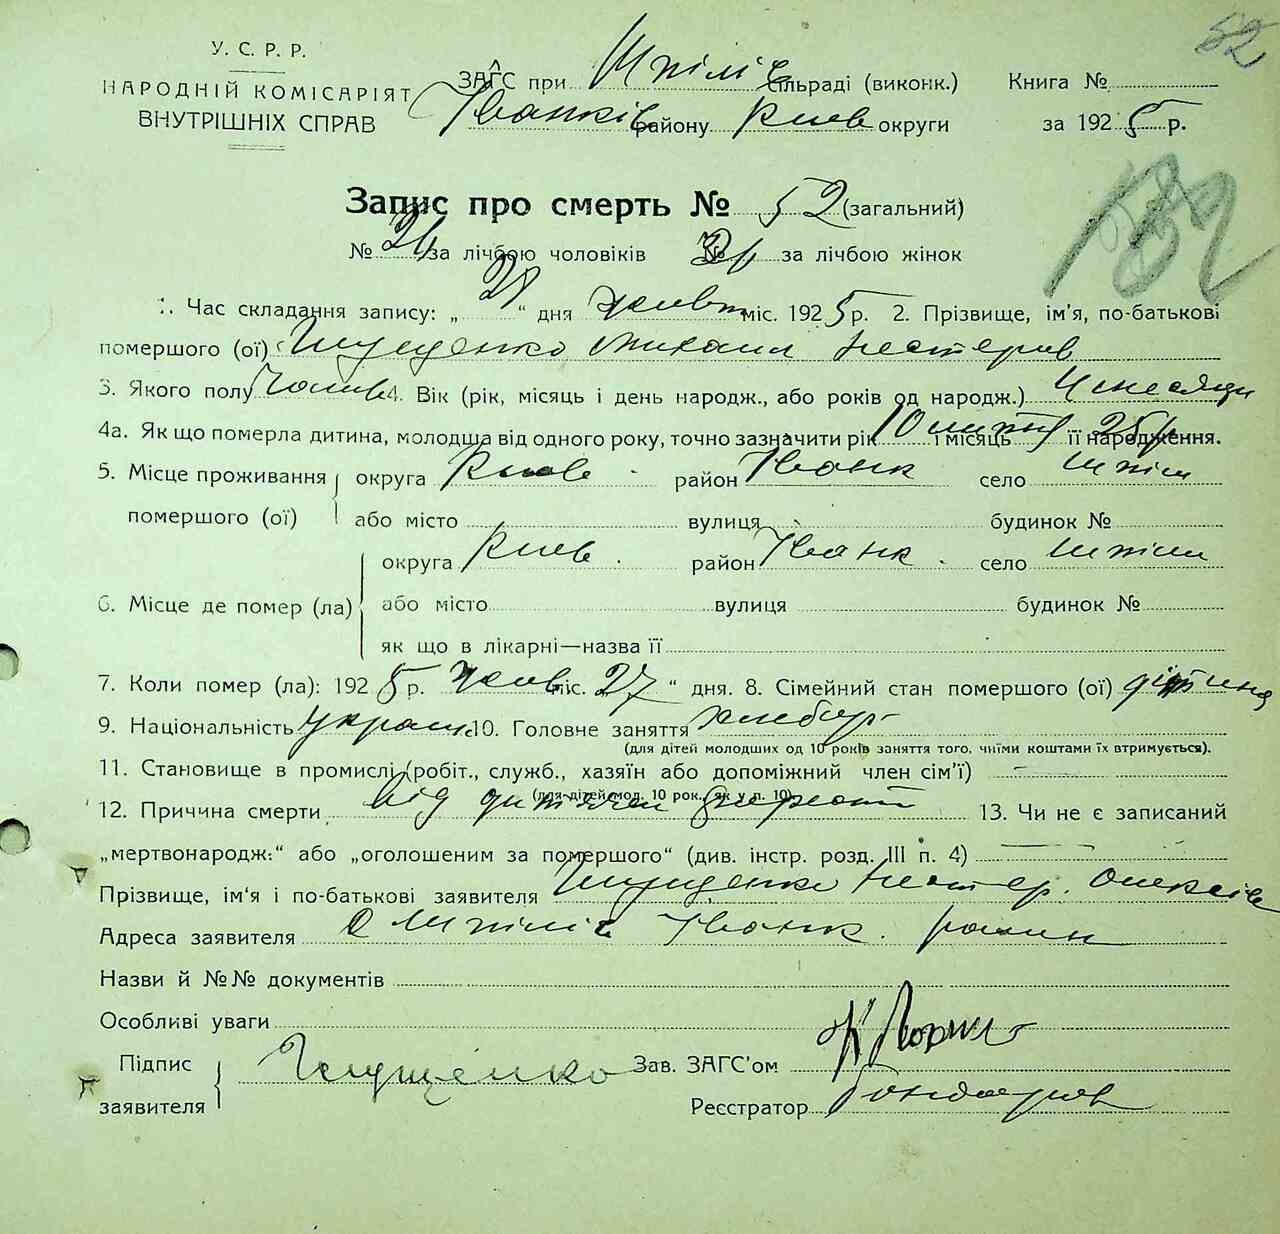 52
У. С. Р. Р.
НАРОДНІЙ КОМІСАРІЯТ
ВНУТРІШНІХ СПРАВ
ЗАГС при Шпілів сільраді (виконк.)
Іванків району Киев округи
Книга №
за 1925 р.
Запис про смерть № 52 (загальний)
№ за лічбою чоловіків № за лічбою жінок
1. Час складання запису: „ “ дня жовт міс. 1925 р. 2. Прізвище, ім'я, по-батькові
помершого (ої) Михаил Нестеров
3. Якого полу Чолов 4. Вік (рік, місяць і день народж., або років од народж.) 4 месяци
4а. Як що померла дитина, молодша від одного року, точно зазначити рік 10 і місяць 25 р її народження.
5. Місце проживання помершого (ої) округа Киев район Іванк село Шпіли
або місто вулиця будинок №
6. Місце де помер (ла) округа Киев район Іванк село Шпіли
або місто вулиця будинок №
як що в лікарні—назва її
7. Коли помер (ла): 1925 р. жовт міс. 27 “ дня. 8. Сімейний стан помершого (ої) дітина
9. Національність украин 10. Головне заняття хлебор
(для дітей молодших од 10 років заняття того, чиїми коштами їх втримується).
11. Становище в промислі (робіт., служб., хазяїн або допоміжний член сім'ї)
(для дітей мол. 10 рок. як у п. 10)
12. Причина смерти від 13. Чи не є записаний
„мертвонародж.“ або „оголошеним за помершого“ (див. інстр. розд. III п. 4)
Прізвище, ім'я і по-батькові заявителя Нестер. Олексів
Адреса заявителя с Шпілів Іванк. район
Назви й №№ документів
Особливі уваги
Підпис заявителя
Зав. ЗАГС'ом
Реєстратор Бондарев